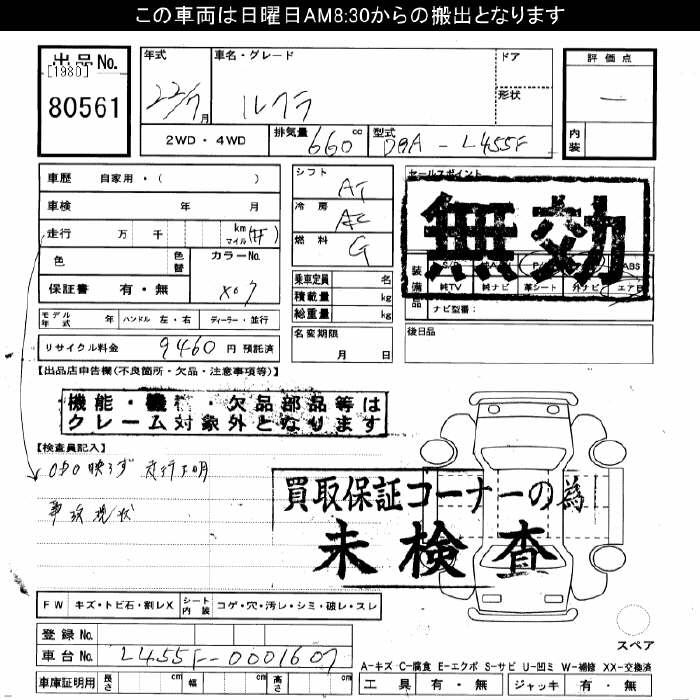 この車両は日曜日AM8:30からの搬出となります
出品No.
[1980]
80561
年式
22/7月
車名・グレード
ルクラ
ドア
形状
評価点
—
内装
2WD・4WD
排気量 660 cc
型式 DBA-L455F
車歴 自家用・( )
車検 年 月
走行 万 千 km マイル
色 色替 カラーNo.
X07
保証書 有・無
シフト AT
冷房 AC
燃料 G
乗車定員 名
積載量 kg
総重量 kg
セールスポイント
無効
装備品
ABS
純TV 純ナビ 革シート 外ナビ エアB
ナビ型番:
モデル年式 年 ハンドル 左・右 ディーラー・並行
リサイクル料金 9460 円 預託済
名変期限 月 日
後日品
【出品店申告欄(不良箇所・欠品・注意事項等)】
機能・機 ・欠品部品等は
クレーム対象外となります
【検査員記入】
ODO映らず 走行不明
事故現状
買取保証コーナーの為
未検査
FW キズ・トビ石・割レX シート内装 コゲ・穴・汚レ・シミ・破レ・スレ
登録No.
車台No. L455F-0001607
車庫証明用 長さ cm 幅 cm 高さ cm
スペア
A-キズ C-腐食 E-エクボ S-サビ U-凹ミ W-補修 XX-交換済
工具 有・無 ジャッキ 有・無